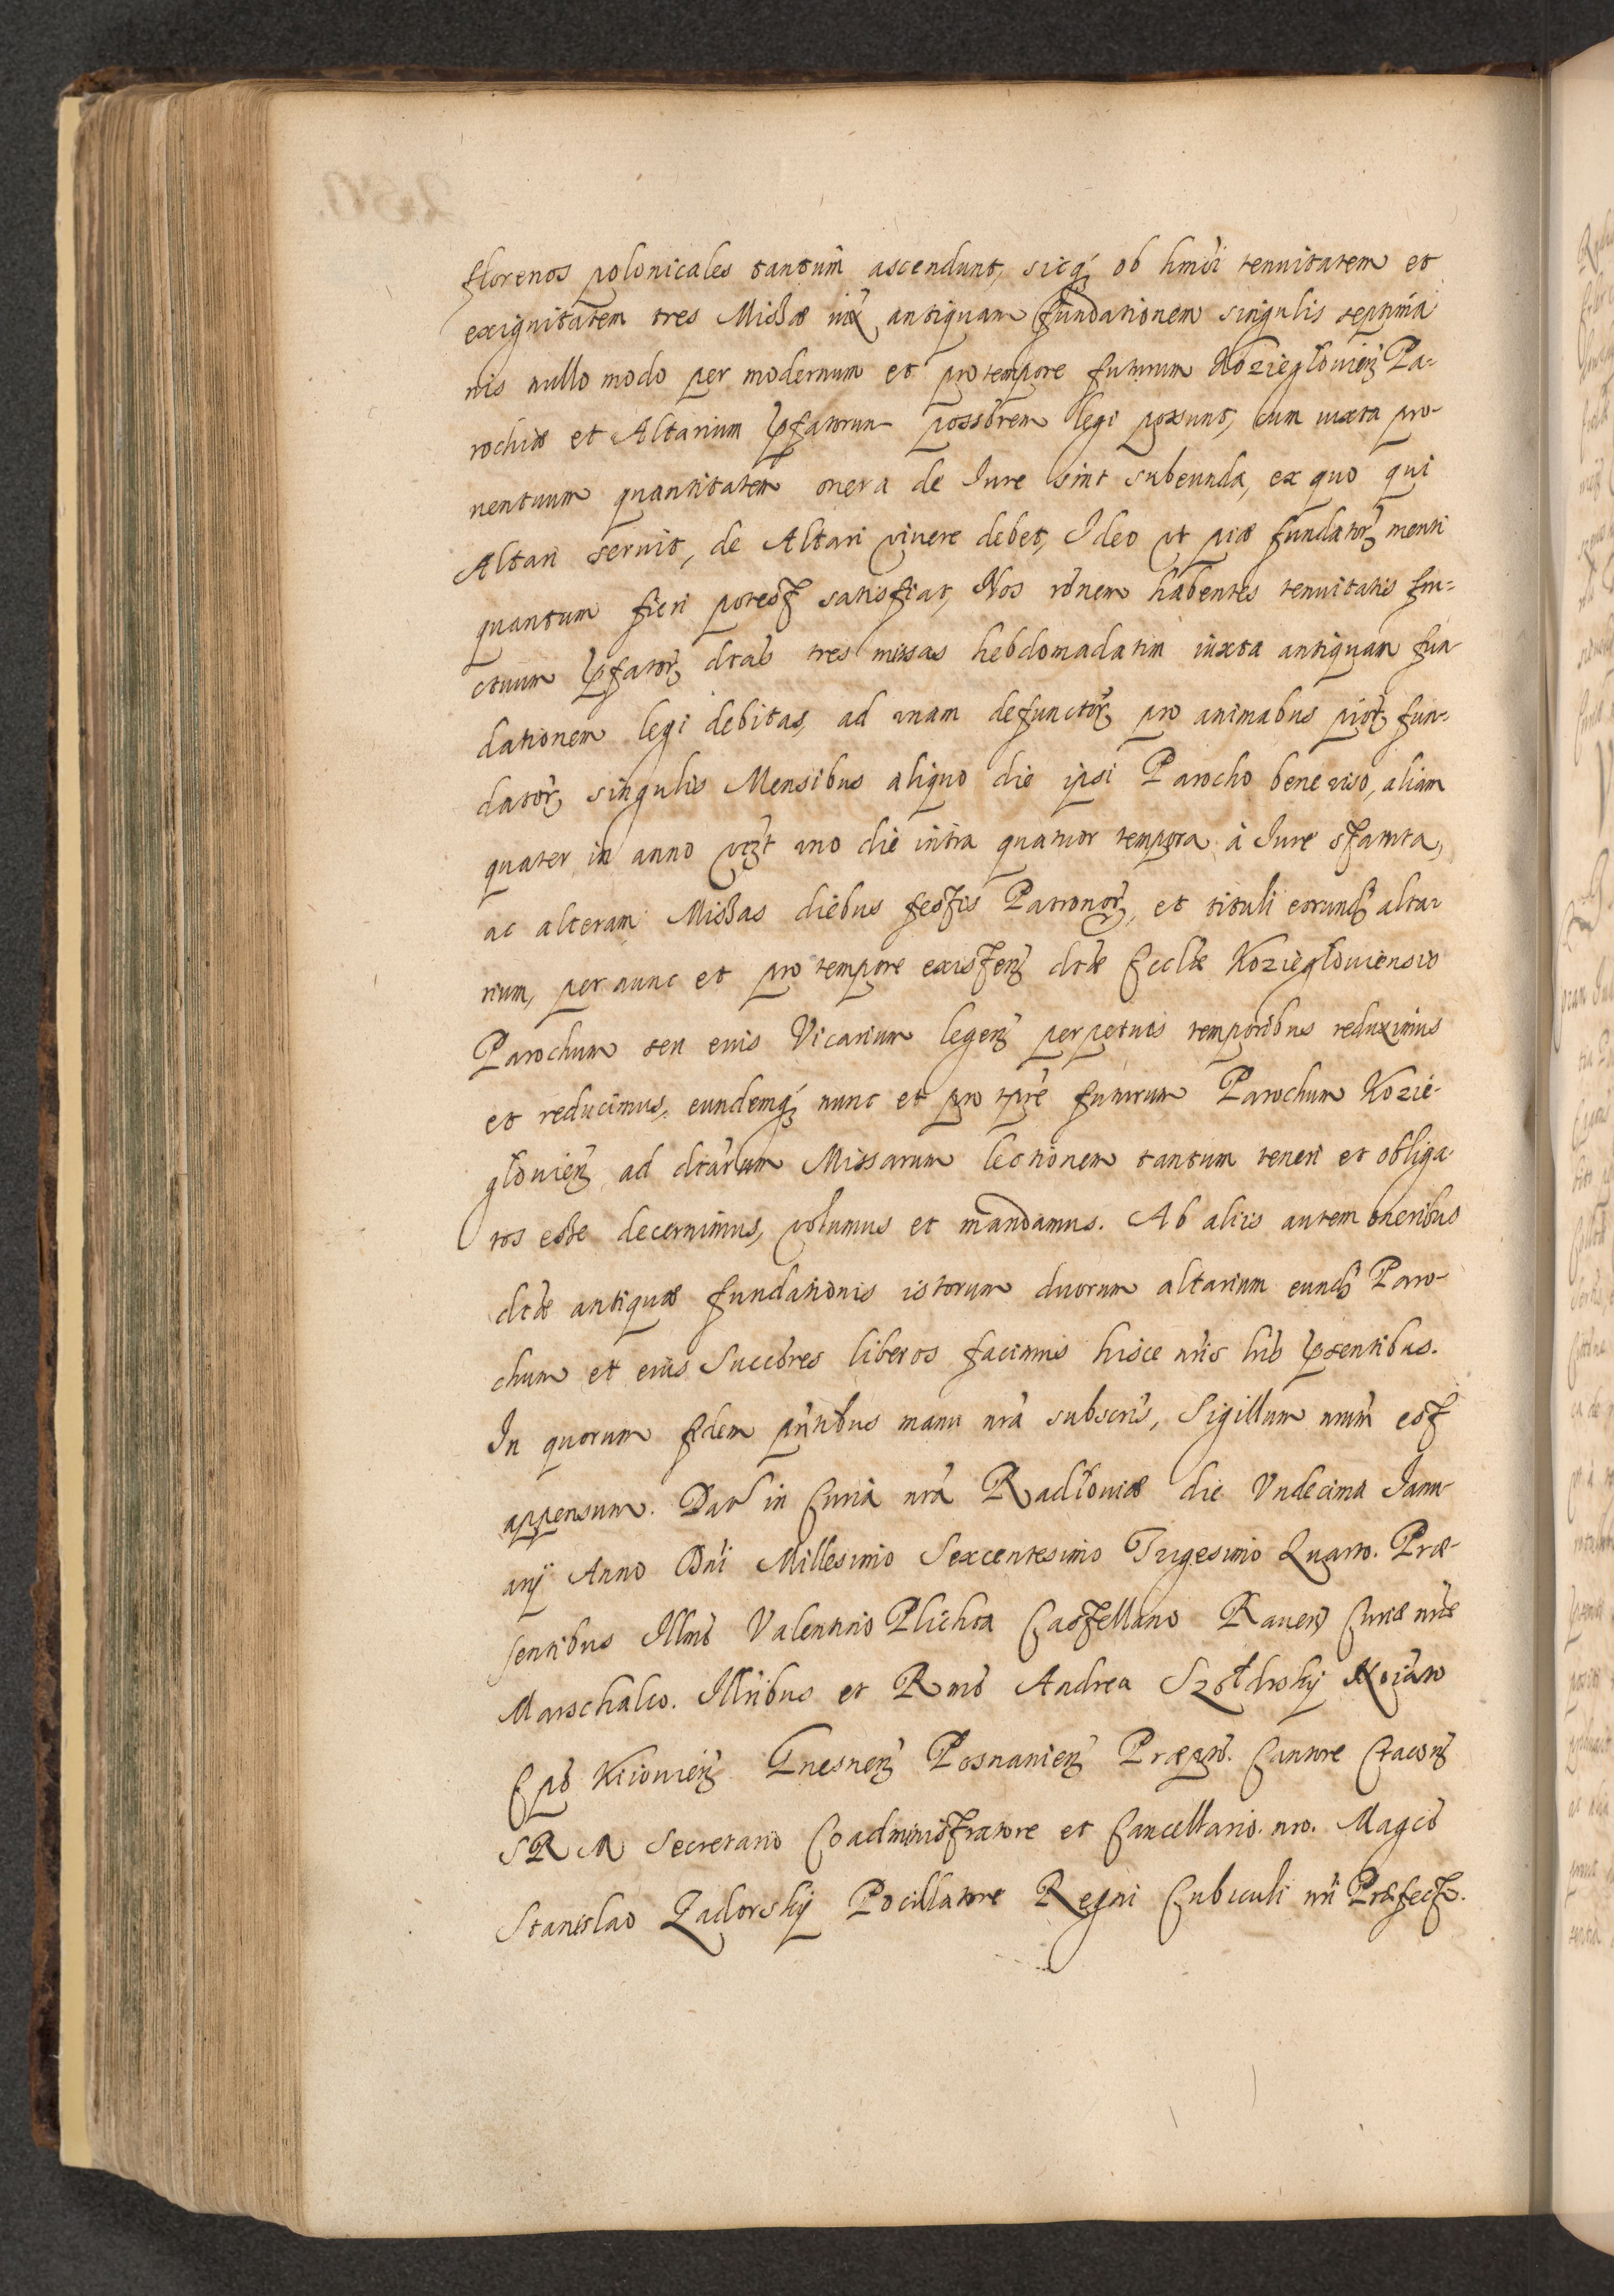 florenos polonicales tantum ascendunt, sicq; ob hm̃õi tenuitatem et
exiguitatem tres Missæ iux antiquam fundationem singulis septima
nis nullo modo per modernum et pro tempore futurum Kozieglovien Pa-
rochiæ et Altarium pfatorum possorem legi possunt, cum iuxta pro-
ventuum quantitatem onera de Iure sint subeunda, ex quo qui
Altari servit, de Altari vivere debet, Ideo ut piæ fundator menti
quantum fieri potest satisfiat, Nos rõnem habentes tenuitatis fru-
ctuum pfator dtas tres missas hebdomadatim iuxta antiquam fun
dationem legi debitas, ad unam defunctor pro animabus pior fun-
dator singulis Mensibus aliquo die ipsi Parocho bene viso, aliam
quater in anno uczt uno die intra quatuor tempora à Iure statuta,
ac alteram Missas diebus festis Patronor, et tituli eorund alta-
rium, per nunc et pro tempore existen dtæ Ecclæ Koziegloviensis
Parochum seu eius Vicarium legen perpetuis temporibus reduximus
et reducimus, eundemq; nunc et pro tpre futurum Parochum Kozie-
glovien ad dtarum Missarum lectionem tantum teneri et obliga-
tos esse decernimus, volumus et mandamus. Ab aliis autem oneribus
dtæ antiquæ fundationis istorum duorum altarium eund Paro-
chum et eius Succores liberos facimus hisce nris lris psentibus.
In quorum fidem pntibus manu nra subscris, Sigillum nrum est
appensum. Dat in Curia nra Radloviæ die Undecima Janu-
arij Anno Dni Millesimo Sexcentesimo Trigesimo Quarto. Præ-
sentibus Illmo Valentino Plichta Castellano Raven Curiæ nræ
Marschalco. Illribus et Rmo Andrea Szoldrskij Noiato
Epo Kiiovien Gnesnen Posnanien Præpto. Cantore Cracon
SRM Secretario Coadministratore et Cancellario nro. Magco
Stanislao Zadorskij Pocillatore Regni Cubiculi nri Præfect.